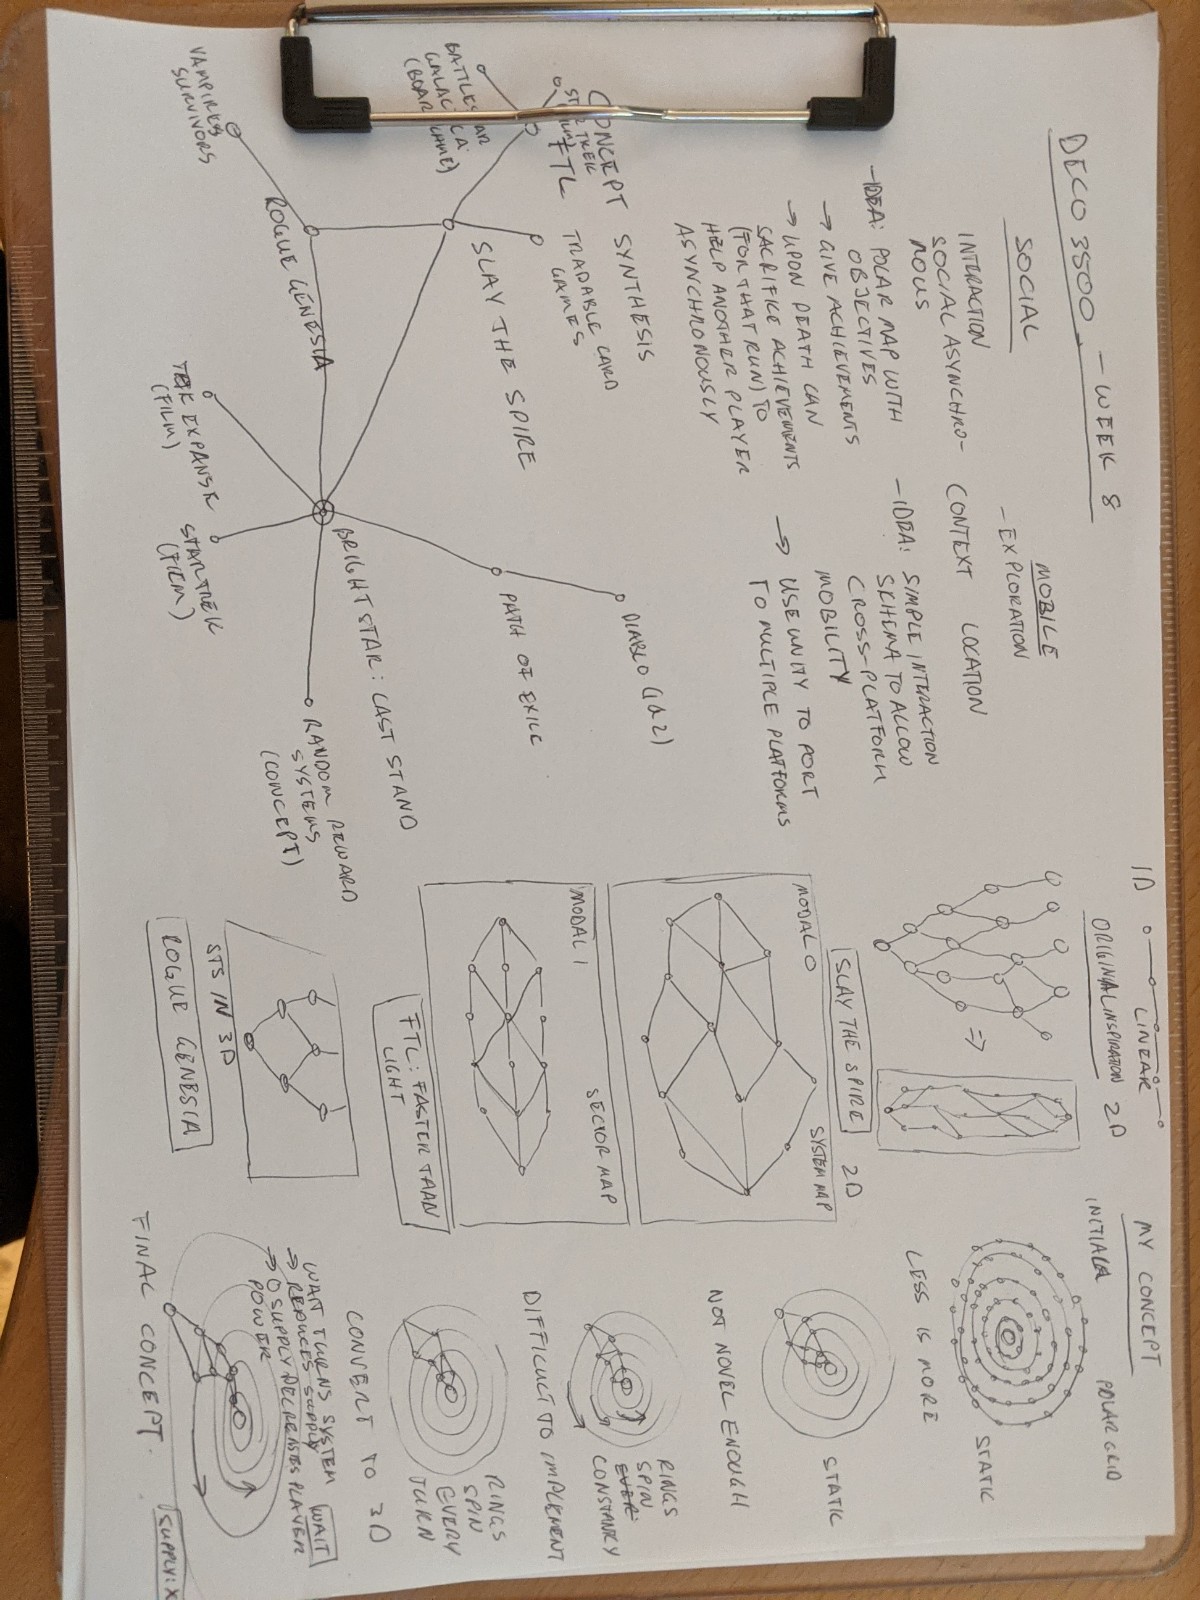 DECO 3500 - WEEK 8
SOCIAL
INTERACTION
SOCIAL ASYNCHRO-
NOUS
- IDEA: POLAR MAP WITH
OBJECTIVES
→ GIVE ACHIEVEMENTS
→ UPON DEATH CAN
SACRIFICE ACHIEVEMENTS
(FOR THAT RUN) TO
HELP ANOTHER PLAYER
ASYNCHRONOUSLY
MOBILE
- EXPLORATION
CONTEXT LOCATION
- IDEA: SIMPLE INTERACTION
SCHEMA TO ALLOW
CROSS-PLATFORM
MOBILITY
→ USE UNITY TO PORT
TO MULTIPLE PLATFORMS
CONCEPT SYNTHESIS
STAR TREK
(FILM)
FTL
TRADABLE CARD
GAMES
SLAY THE SPIRE
BATTLESTAR
GALACTICA
(BOARD GAME)
ROGUE GENESIA
VAMPIRE SURVIVORS
DIABLO (1 & 2)
PATH OF EXILE
BRIGHTSTAR: LAST STAND
RANDOM REWARD
SYSTEMS
(CONCEPT)
EXPANSE
(FILM)
STAR TREK
(FILM)
1D
LINEAR
ORIGINAL INSPIRATION 2D
⇒
SLAY THE SPIRE
2D
MODAL 0
SYSTEM MAP
MODAL 1
SECTOR MAP
FTL: FASTER THAN
LIGHT
STS IN 3D
ROGUE GENESIA
MY CONCEPT
INITIAL
POLAR GRID
STATIC
LESS IS MORE
STATIC
NOT NOVEL ENOUGH
RINGS
SPIN
EVER
CONSTANLY
DIFFICULT TO IMPLEMENT
RINGS
SPIN
EVERY
TURN
CONVERT TO 3D
WAIT TURNS SYSTEM
→ REDUCES SUPPLY
WAIT
→ 0 SUPPLY DECREASES PLAYER
POWER
SUPPLY: X
FINAL CONCEPT.